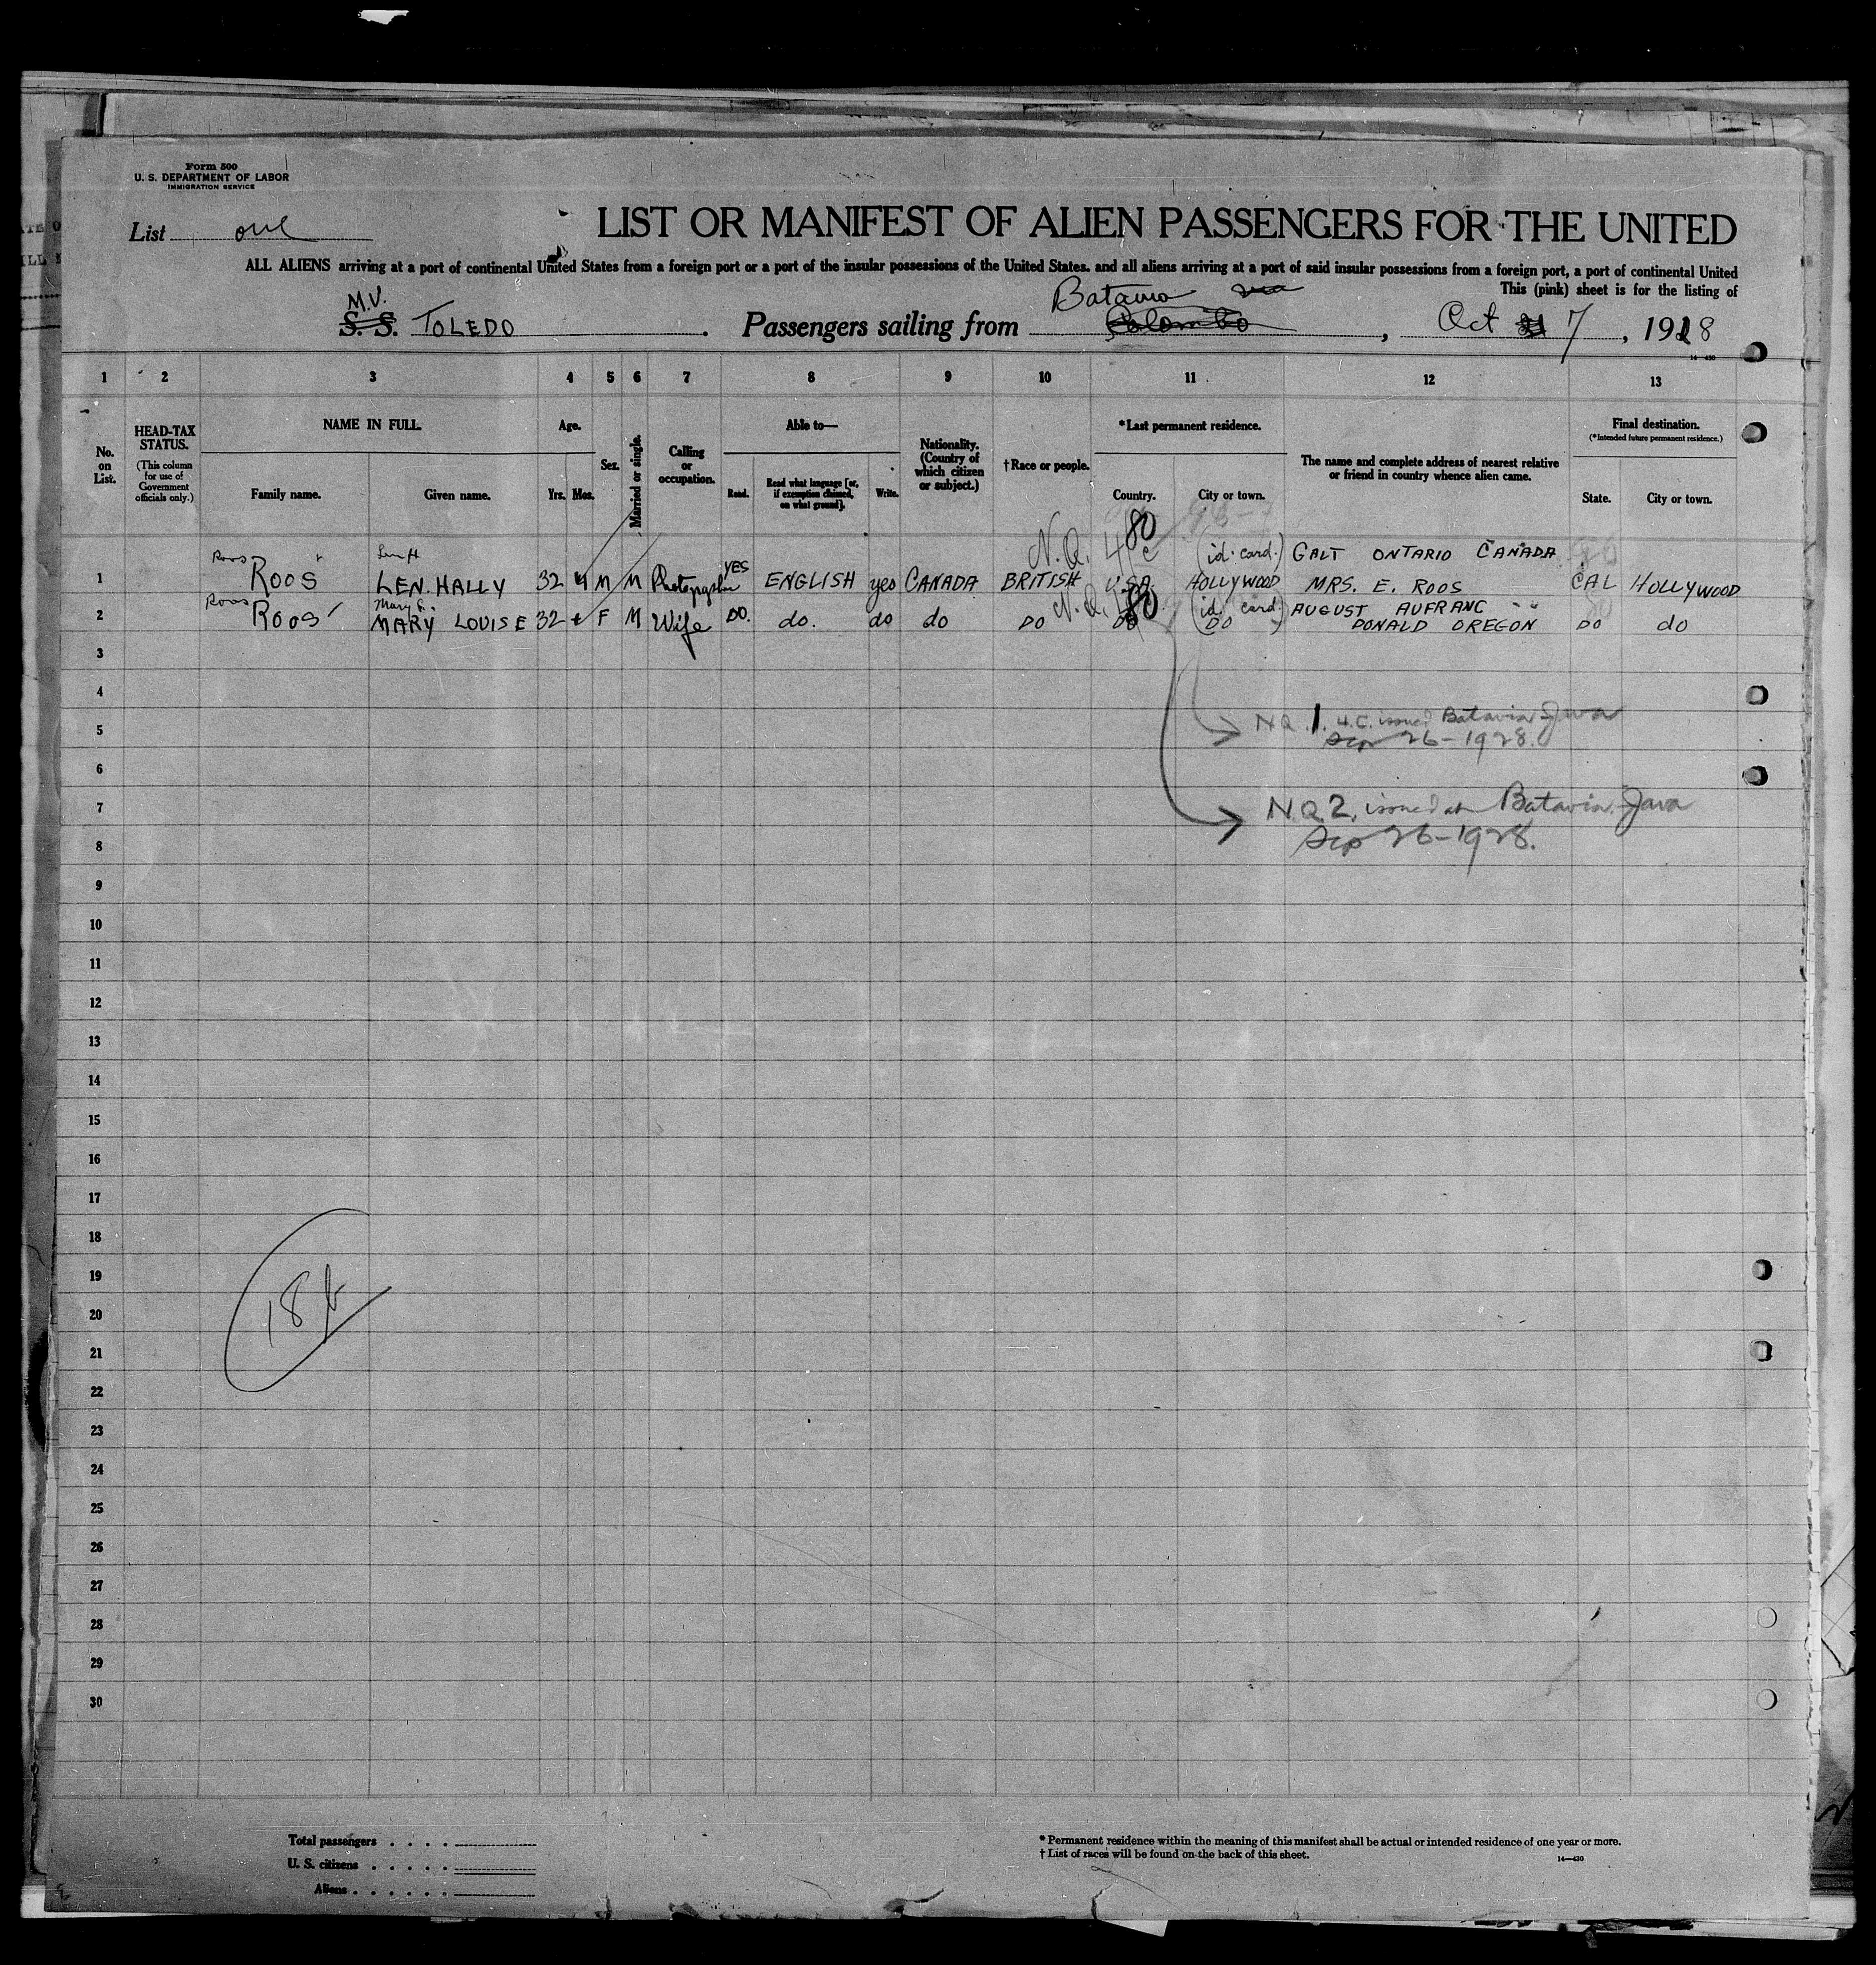 Form 500
U. S. DEPARTMENT OF LABOR
IMMIGRATION SERVICE
List one
LIST OR MANIFEST OF ALIEN PASSENGERS FOR THE UNITED
ALL ALIENS arriving at a port of continental United States from a foreign port or a port of the insular possessions of the United States, and all aliens arriving at a port of said insular possessions from a foreign port, a port of continental United
This (pink) sheet is for the listing of
M.V. Batavia via
S. S. TOLEDO. Passengers sailing from Colombo, Oct 21 7, 1928
14-430
1 2 3 4 5 6 7 8 9 10 11 12 13
No. on List.
HEAD-TAX STATUS.
(This column for use of Government officials only.)
NAME IN FULL.
Family name. Given name.
Age.
Yrs. Mos.
Sex.
Married or single.
Calling or occupation.
Able to—
Read. Read what language [or, if exemption claimed, on what ground]. Write.
Nationality. (Country of which citizen or subject.)
†Race or people.
*Last permanent residence.
Country. City or town.
The name and complete address of nearest relative or friend in country whence alien came.
Final destination.
(*Intended future permanent residence.)
State. City or town.
Roos Len H N.Q. 4c 80 (id. card.) GALT ONTARIO CANADA
1 ROOS LEN. HALLY 32 4 M M Photographer YES ENGLISH yes CANADA BRITISH U.S.A. HOLLYWOOD MRS. E. ROOS CAL HOLLYWOOD
Roos Mary L. N.Q. 80 (id. card) AUGUST AUFRANC
2 ROOS MARY LOUISE 32 F M Wife DO. do. do do DO DO DO DONALD OREGON DO do
3
4
5 N.Q. 1. 4.C. issued Batavia Java
Sep 26-1928.
6
7 N.Q. 2. issued at Batavia. Java
8 Sep 26-1928.
9
10
11
12
13
14
15
16
17
18
19
20
18
21
22
23
24
25
26
27
28
29
30
Total passengers . . . .
U. S. citizens . . . . .
Aliens . . . . . .
* Permanent residence within the meaning of this manifest shall be actual or intended residence of one year or more.
† List of races will be found on the back of this sheet.
14—430